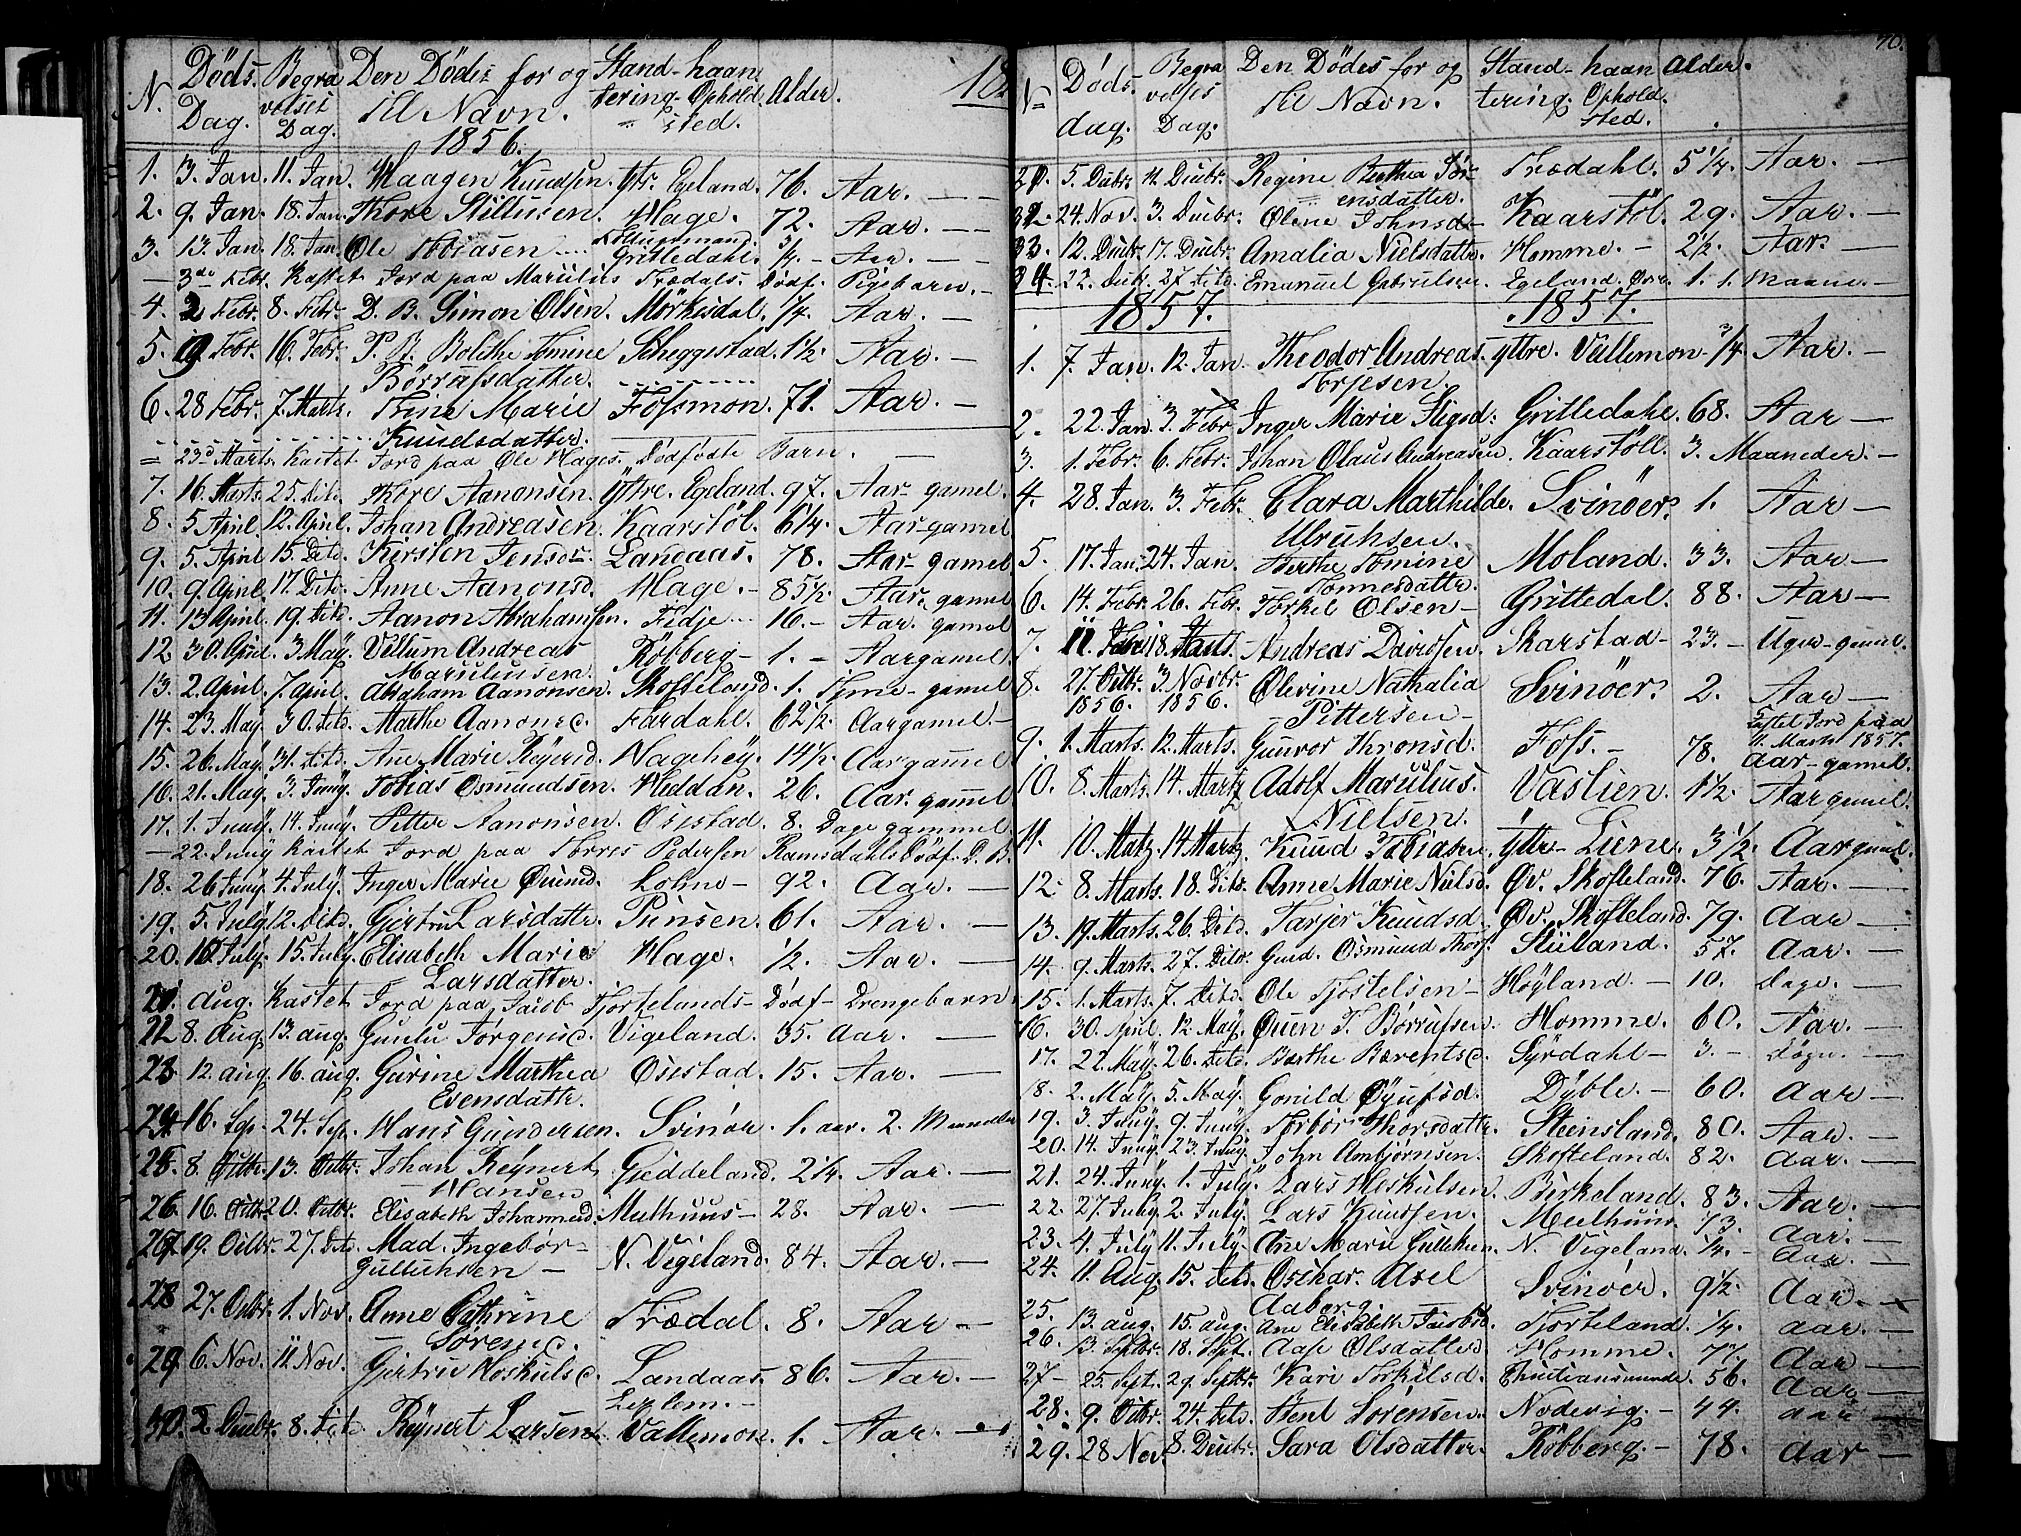 N. Døds Dag. Begravelses Dag. Den Dødes for og Til Navn. Stand-haantering. Ophold sted. Alder. 18
1856.
1. 3. Jan. 11. Jan. Haagen Knudsen. Ytr. Egeland. 76. Aar. —
2. 9. Jan. 18. Jan. Thore Hage. 72. Aar. —
3. 13. Jan. 18. Jan. Ole Tobiasen Huusmand. Grittedahl. 3/4 – Aar. —
— 3de Febr. Kastet Jord paa Marulius Trædals. Dødf. Pigebarn. —
4. 2 Febr. 8. Febr. D. B. Simon Olsen. Mörkesdal. 1/4. Aar. —
5. 9. Febr. 16. Febr. P. B. Bolethe Tomine Scheggestad. 1 1/2. Aar. —
Börrufsdatter.
6. 28 Febr. 7. Marts. Trine Marie Fossmon. 71. Aar. —
Knudsdatter.
= 23d Marts. Kastet Jord paa Ole Hages. Dødfødte Barn. —
7. 16. Marts. 25. Dito. Thore Aanonsen. Yttre. Egeland. 97. Aar gamel.
8. 5. April. 12. April. Johan Andreasen. Kaarstöl. 6 1/4. Aar gamel
9. 5. April 15. Dito. Kirsten Jensdr. Landaas. 78. Aar gamel.
10. 9. April. 17. Dito. Anne Aanonsd. Hage. – 85 1/2. Aar. gamel
11. 13 April. 19. Dito. Aanon Abrahamsen. Fidje 16. – Aar. gamel
12. 30. April. 3 May. Villum Andreas Röbberg – 1. – Aar gamel
Maruliusen.
13. 2. April. 7. April. Abraham Aanonsen. Skofteland. 1. Time gamel
14. 23. May. 30. Dito. Marthe Aanonsd. Fardahl. 62 1/2. Aar gamel. –
15. 26. May. 31. Dito. Ane Marie Reyersd. Nagehöy. 14 1/2. Aar gamel
16. 21. May. 3. Juny. Tobias Osmundsen. Heddan. 26. Aar. gamel
17. 1. Juny. 14. Juny. Pitter Aanonsen. Osestad. 8. Dage gammel
— 22. Juny Kastet Jord paa Torres Pedersen Ramsdahls Dödf. D. B.
18. 26 Juny. 4. July. Inger Marie Lohne – 92. Aar. —
19. 5. July. 12. Dito. Gjertru Larsdattr. Pinsen. 61. Aar. —
20. 10. July. 15. July. Elisabeth Marie Hage. 1/2. Aar. —
Larsdatter.
21. Aug. Kastet Jord paa Jacob Tjortelands – Dödf – Drengebarn
22 8. Aug 13. aug. Guulu Jørgensd. Vigeland. 35. Aar. —
23 12. aug 16. aug. Gurine Marthea Osestad. 15. Aar. —
Evensdattr.
24 16. Sep. 24. Sep. Hans Gundersen. Svinör. 1. aar. 2. Maaneder
25. 8. Octbr. 13. Octbr. Johan Reynert Gieddeland. 2 1/4. Aar. —
Hansen
26. 16. Octbr. 20. Octbr. Elisabeth Johannesd. Mulhuus – 28. Aar. —
27 19. Octbr. 27. Dito. Mad. Ingebör N. Vigeland. 84. Aar. —
Gulluhsen –
28 27. Octbr. 1. Nov. Anne Cathrine Trædal. 8. Aar —
Sörensd.
29 6. Nov. 11 Nov. Gjertru Hoskulsd. Landaas 86. Aar. —
30. 2. Decbr. 8. Dito Reynert Larsen. Vallemon. 1. Aar. —
70.
No Døds. dag. Begravelses Dag. Den Dødes for og Til Navn. Stand-haantering. Ophold sted. Alder.
31. 5. Decbr. 11. Decbr. Regine Berthea Sör- Trædahl. 5 1/4. Aar. —
ensdatter.
32. 24. Nov. 3. Decbr. Olene Johnsd – Kaarstöl. 29. Aar. —
33. 12. Decbr. 17. Decbr. Amalia Nielsdatter. Homme. – 2 1/2. Aar. —
34. 22. Decbr. 27. Dito. Emanuel Gabrielsen. Egeland. Øvre. 1. Maaned. —
1857. 1857.
1. 7. Jan. 12. Jan. Theodor Andreas yttre. Vallemon – 3/4. Aar. —
Torjesen.
2. 22. Jan. 3. Febr Inger Marie Stigsd: Grittedahl. 68. Aar —
3. 1. Febr. 6. Febr. Johan Olaus Andreasen. Kaarstöll. 3. Maaneder. –
4. 28. Jan. 3. Febr. Clara Marthilde. Svinöer. 1. Aar —
Ulruhsen.
5. 17. Jan. 24. Jan. Berthe Tomine Moland. 33. Aar —
Tonnesdattr.
6. 14. Febr. 26. Febr. Torkel Olsen – Grittedal. 88. Aar —
7. 11. 18. Marts. Andreas Davidsen. Skarstad – 23. – Uger – gamel.
8. 27. Octbr. 3. Novbr. Olevine Nathalia Svinöer. 2. Aar —
1856. 1856. Pittersen – Kastet Jord paa
9. 1. Marts. 12. Marts. Gunvor Thronsd. Foss. – 78. 11. Marts 1857. Aar – gamel.
10. 8. Marts. 14. Martz Adolf Marulius. Vaslien. 1 1/2. Aar gamel.
Nielsen.
11. 10. Matz. 14 Martz. Knud Tobiasen. Yttre – Liene. 3 1/2. Aar gamel.
12. 8. Marts. 18. Dito. Anne Marie Nielsd. Øv. Skofteland. 76. Aar. —
13. 19. Marts. 26. Dito. Tarjer Knudsd. Øv. Skofteland. 79. Aar —
14. 9. Marts. 27. Dito. Gmd. Osmund Thors. 57. Aar. —
15. 1. Marts. 7. Dito. Ole Tjostelsen – Höyland. – 10. Dage. –
16. 30. April. 12. May. Ouen T. Börrufsen. Homme. 60. Aar. —
17. 22. May. 26. Dito. Barthe Bærentsd. Syrdahl – 3. – Døgn. —
18. 2. May. 5. May. Gonild Øyufsd. Dyble. – 60. Aar —
19. 3. Juny. 9. Juny. Torbör Thorsdattr. Steinsland. 80. Aar. —
20. 14. Juny. 23. Juny John Ambjörnsen. Skofteland. 82. Aar. —
21. 24. Juny. 1. July. Lars Hoskulsen. Birkeland. 83. Aar. —
22. 27. July. 2. July. Lars Knudsen. Meelhuus. 73. Aar. —
23. 4. July 11. July. Ane Marie Gulleksen. N. Vigeland. 1/4. – Aar —
24. 11. Aug. 15. Dito. Oschar. Axel Svinöer. 9 1/2. Aar. —
Aaberg.
25. 13. aug. 15. aug. Ane Elisabeth Jacobsd. Tjorteland. 1/4. aar. —
26. 13. Septbr. 18. Sept. Aase Olsdatter Homme. 77. Aar —
27 – 25. Sept. 29. Septbr. Kari Torkilsd. Christiansminde. 56. Aar —
28. 9. Octbr. 24. Dito. Stenl Sörensen. Nodevig. – 49. Aar —
29. 28 Nov. 8. Decbr. Sara Olsdatter. Röbberg. – 78. Aar —